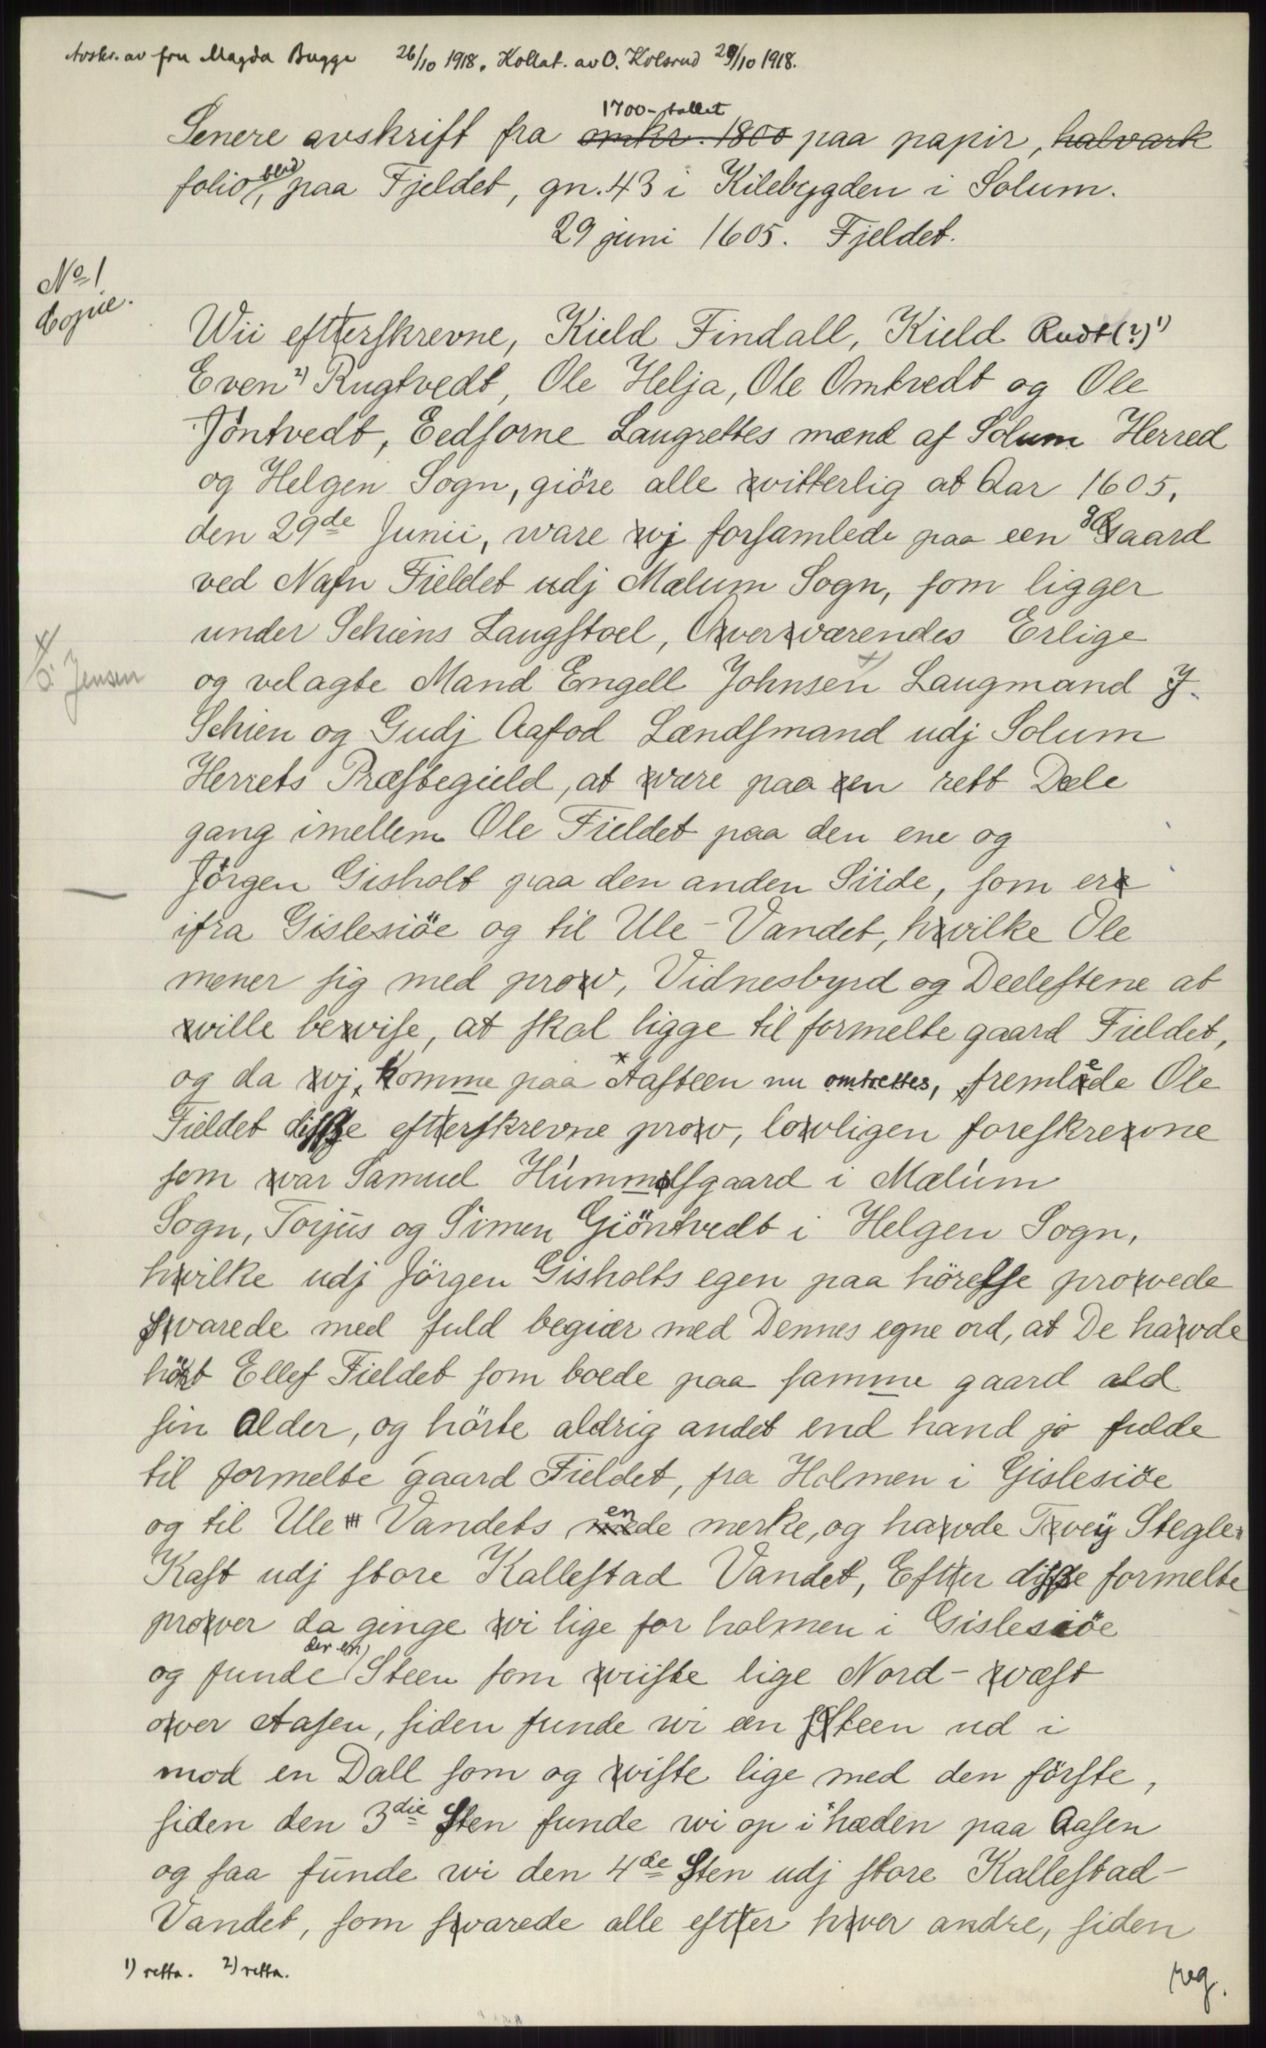 Avskr. av fru Magda Bugge 26/10 1918. Kollat. av O. Kolsrud 29/10 1918.
1700-tallet
Senere avskrift fra omkr. 1800 paa papir, halvark
folioblad, paa Fjeldet, gn. 43 i Kilebygden i Solum.
29 juni 1605. Fjeldet.
No 1
Copie.
Wii efterskrevne, Kield Findall, Kield Rudt(?) 1)
Even 2) Rugtvedt, Ole Helja, Ole Omtvedt og Ole
Jöntvedt, Eedsorne Laugrettes mænd af Solum Herred
og Helgen Sogn, giöre alle vitterlig at Aar 1605,
den 29de Junii, ware vj forsamlede paa een gaard
ved Nafn Fieldet udj Mælum Sogn, som ligger
under Schiens Laugstoel, Overværendes Erlige
ɔ: Jensen
og velagte Mand Engell Johnsen Laugmand J
Schien og Gudj Aafod Lændsmand udj Solum
Herrets Præstegield, at være paa en rett Dele
gang imellem Ole Fieldet paa den ene og
Jörgen Gisholt paa den anden Siide, som er
ifra Gislesiöe og til Ule-Vandet, hvilke Ole
mener sig med prov, Vidnesbyrd og Deelestene at
ville bevise, at skal ligge til formelte gaard Fieldet,
og da vj komme paa Aasteen nu omtrettes, fremlede Ole
Fieldet disse efterskrevne prov, lovligen foreskrevne
som var Samuel Hummelsgaard i Mælum
Sogn, Torjus og Simen Giöntvedt i Helgen Sogn,
hvilke udj Jörgen Gisholts egen paa hörelse provede
svarede med fuld begiær med Dennes egne ord, at De havde
hört Ellef Fieldet som boede paa samme gaard ald
sin alder, og hörte aldrig andet end hand jo fulde
til formelte gaard Fieldet, fra Holmen i Gislesiöe
og til Ule Vandets ende merke, og havde Tvey Stegle-
Kast udj store Kallestad Vandet, Efter disse formelte
prover da ginge vi lige for holmen i Gislesiöe
og funde der en Steen som viiste lige Nord-væst
over Aasen, siden funde wi een Steen ud i
mod en Dall som og viste lige med den förste,
siden den 3die Sten funde wi op i hæden paa Aasen
og saa funde wi den 4de Sten udj store Kallestad-
Vandet, som svarede alle efter hver andre, siden
1) retta. 2) retta.
reg.